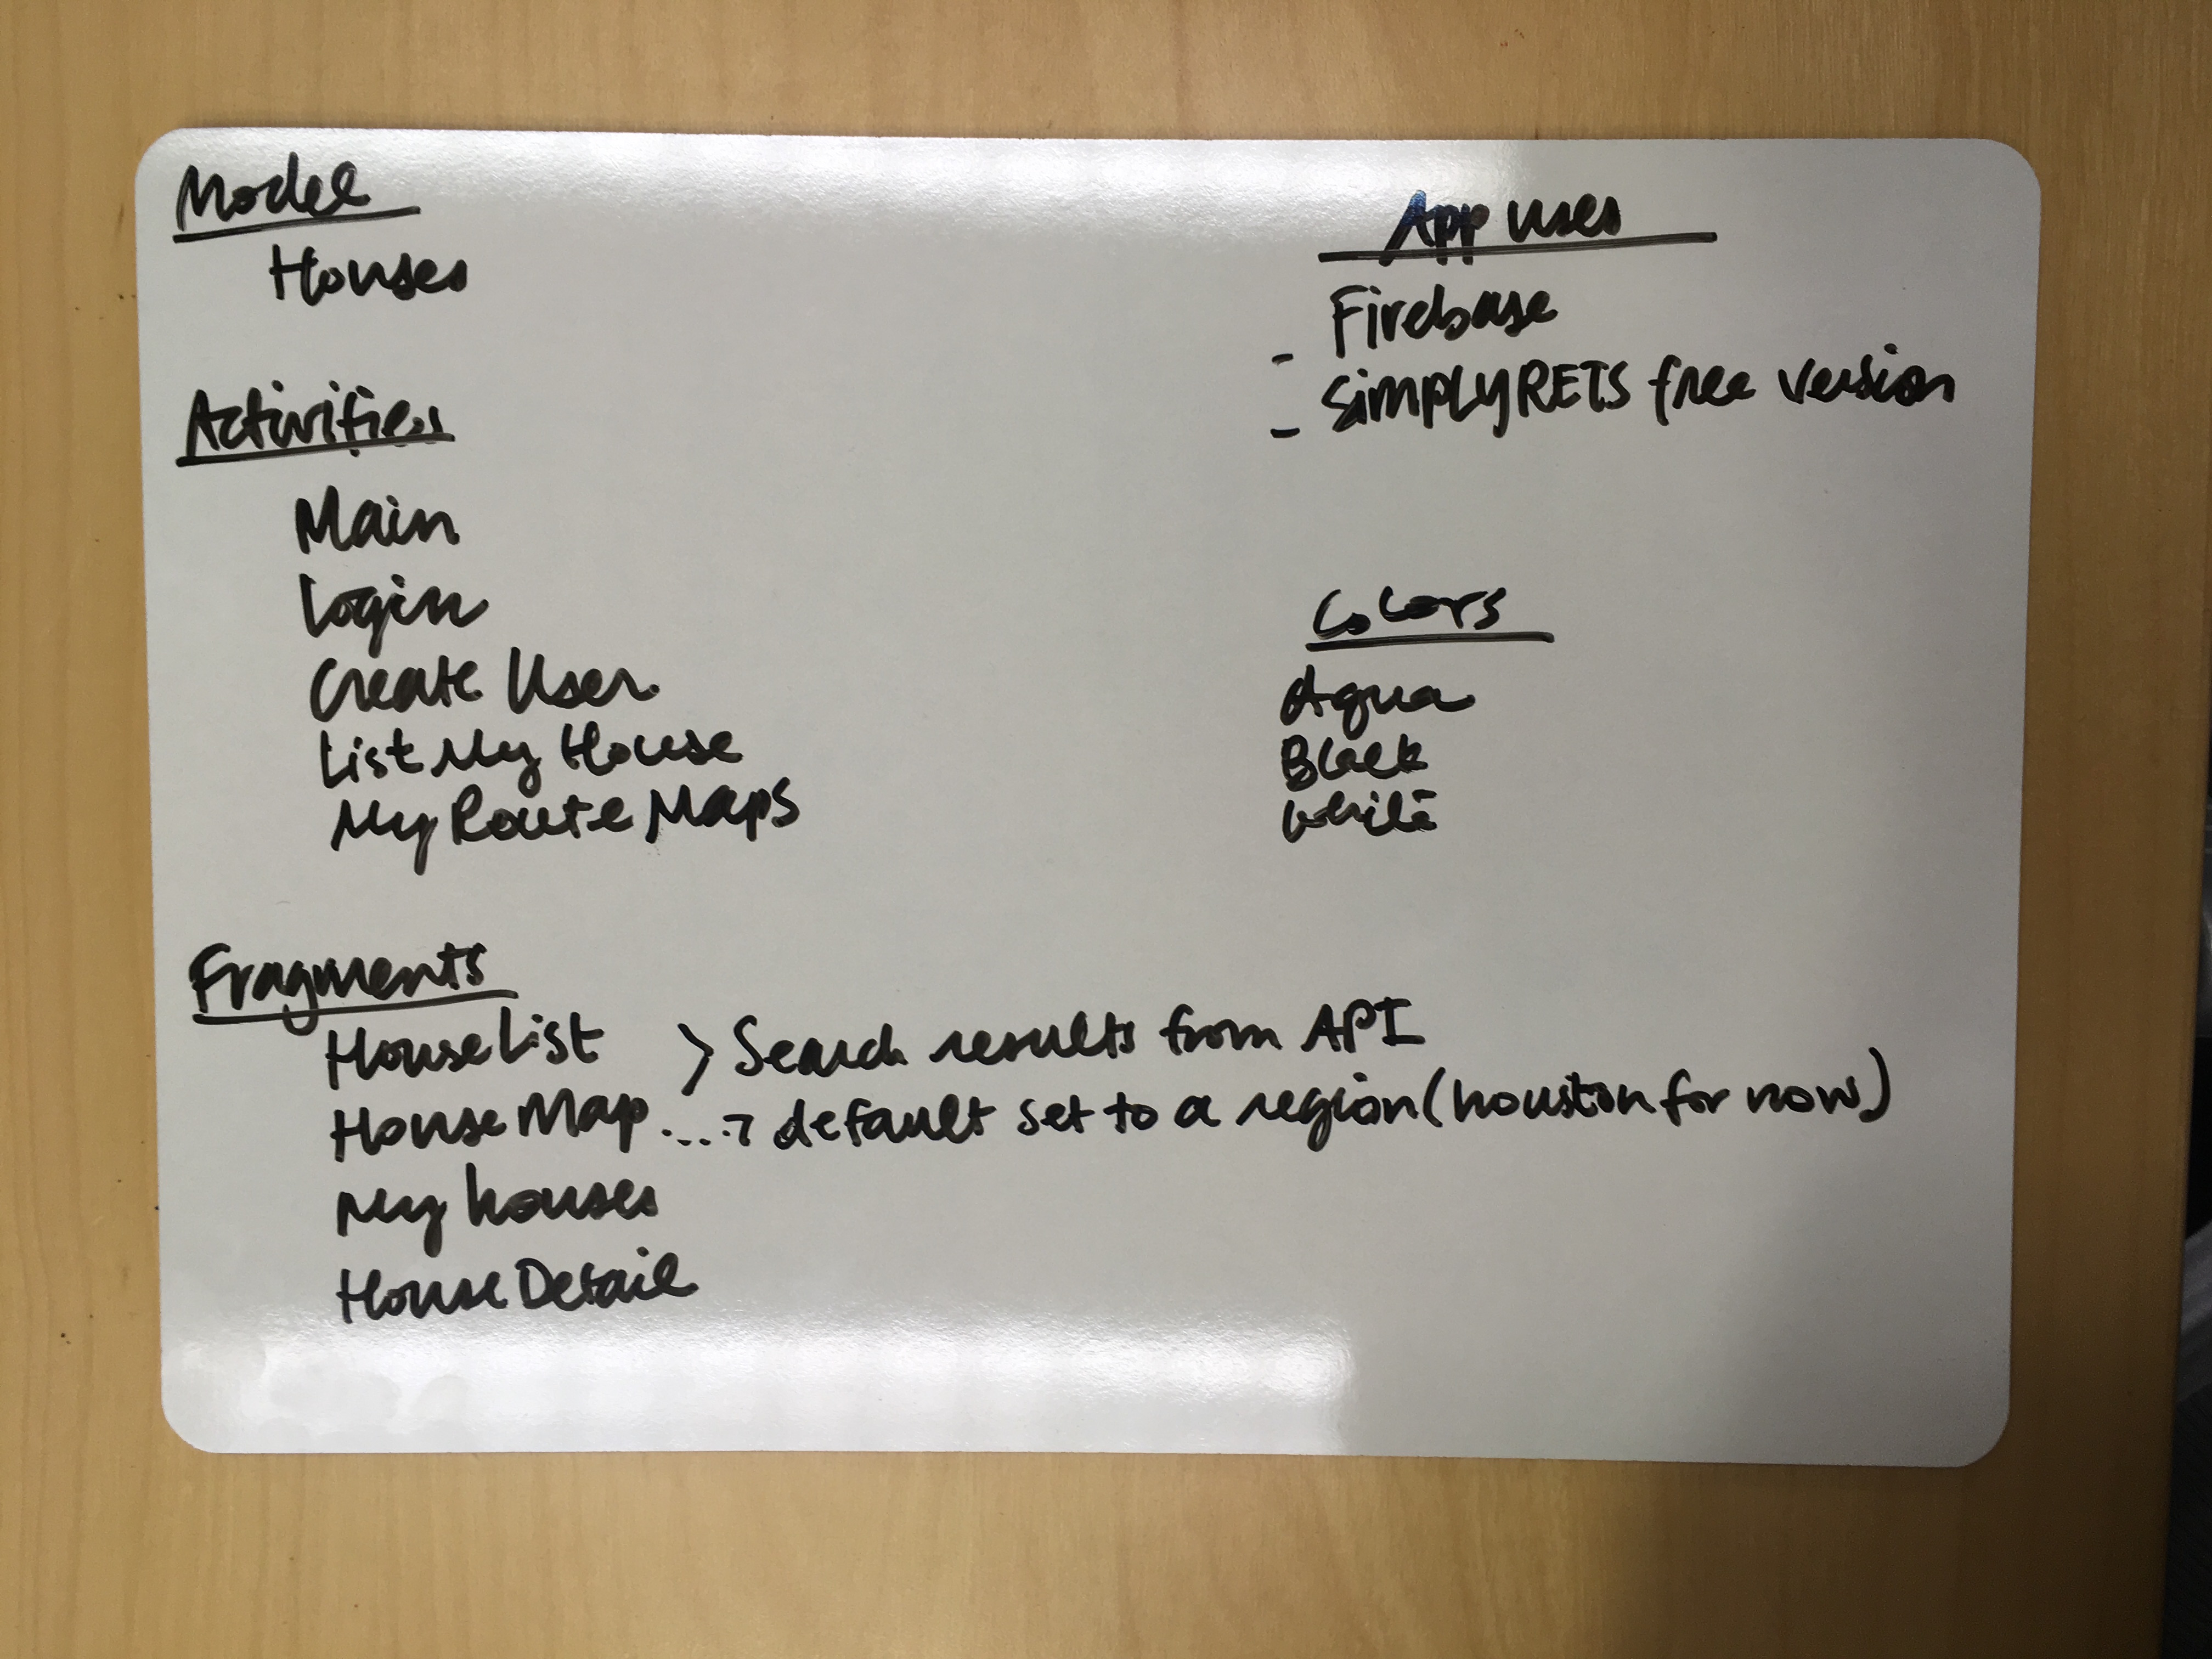 Model
Houses
Activities
Main
Login
Create User
List My House
My Route Maps
Fragments
HouseList > Search results from API
House Map ...→ default set to a region (houston for now)
My houses
House Detail
App uses
- Firebase
- SIMPLYRETS free version
Colors
Aqua
Black
White